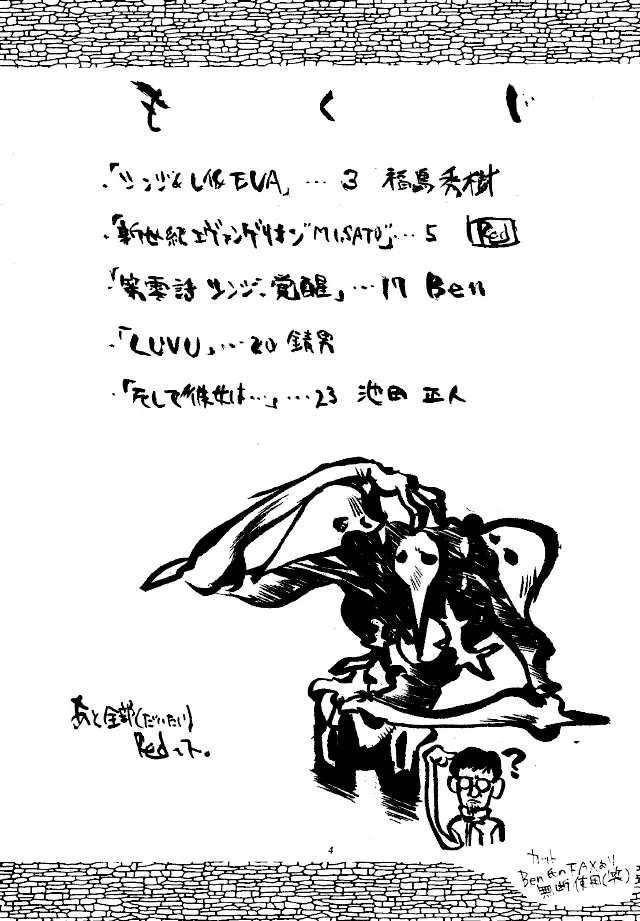 もくじ
・「シンジ&レイ&EVA」…3 福島秀樹
・「新世紀エヴァンゲリオン"MISATO"」…5 Red
・「第零話 シンジ、覚醒」…17 Ben
・「LUVU」…20 錆男
・「そして彼女は…」…23 池田 正人
あと全部(だいたい)
Redって。
?
4
カット
Ben FAXより
無断使用(笑)